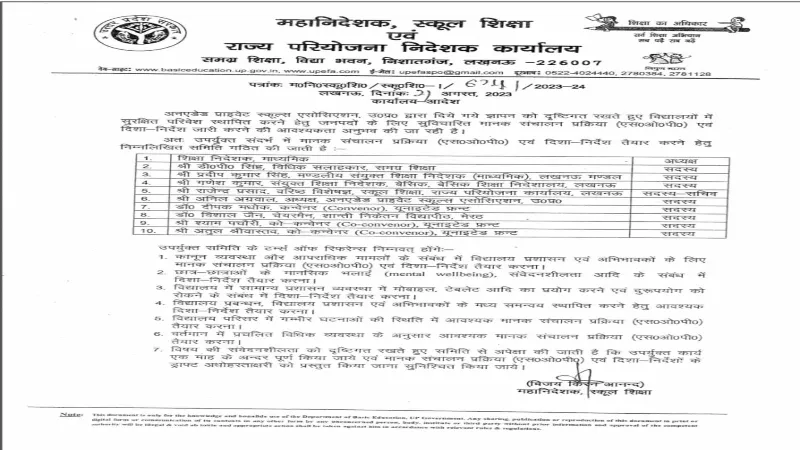 महानिदेशक, स्कूल शिक्षा
एवं
राज्य परियोजना निदेशक कार्यालय
समग्र शिक्षा, विद्या भवन, निशातगंज, लखनऊ -226007
वेब-साइट: www.basiceducation.up.gov.in, www.upefa.com ई-मेल: upefaspo@gmail.com दूरभाष: 0522-4024440, 2780384, 2781128
शिक्षा का अधिकार
सर्व शिक्षा अभियान
सब पढ़ें सब बढ़ें
पत्रांक: म०नि०स्कू०शि० / स्कू०शि०-1/ /2023-24
लखनऊ, दिनांक: 21 अगस्त, 2023
कार्यालय-आदेश
अनएडेड प्राइवेट स्कूल्स एसोसिएशन, उ०प्र० द्वारा दिये गये ज्ञापन को दृष्टिगत रखते हुए विद्यालयों में
सुरक्षित परिवेश स्थापित करने हेतु जनपदों के लिए सुविचारित मानक संचालन प्रक्रिया (एस०ओ०पी०) एवं
दिशा-निर्देश जारी करने की आवश्यकता अनुभव की जा रही है।
अतः उपर्युक्त संदर्भ में मानक संचालन प्रक्रिया (एस०ओ०पी०) एवं दिशा-निर्देश तैयार करने हेतु
निम्नलिखित समिति गठित की जाती है :-
1. शिक्षा निदेशक, माध्यमिक अध्यक्ष
2. श्री डी०पी० सिंह, विधिक सलाहकार, समग्र शिक्षा सदस्य
3. श्री प्रदीप कुमार सिंह, मण्डलीय संयुक्त शिक्षा निदेशक (माध्यमिक), लखनऊ मण्डल सदस्य
4. श्री गणेश कुमार, संयुक्त शिक्षा निदेशक, बेसिक, बेसिक शिक्षा निदेशालय, लखनऊ सदस्य
5. श्री राजेन्द्र प्रसाद, वरिष्ठ विशेषज्ञ, स्कूल शिक्षा, राज्य परियोजना कार्यालय, लखनऊ सदस्य-सचिव
6. श्री अनिल अग्रवाल, अध्यक्ष, अनएडेड प्राइवेट स्कूल्स एसोसिएशन, उ०प्र० सदस्य
7. डॉ० दीपक मधोक, कन्वेनर (Convenor), यूनाइटेड फ्रन्ट सदस्य
8. डॉ० विशाल जैन, चेयरमैन, शान्ती निकेतन विद्यापीठ, मेरठ सदस्य
9. श्री श्याम पचौरी, को-कन्वेनर (Co-convenor), यूनाइटेड फ्रन्ट सदस्य
10. श्री अतुल श्रीवास्तव, को-कन्वेनर (Co-convenor), यूनाइटेड फ्रन्ट सदस्य
उपर्युक्त समिति के टर्म्स ऑफ रिफरेन्स निम्नवत् होंगे:-
1. कानून व्यवस्था और आपराधिक मामलों के संबंध में विद्यालय प्रशासन एवं अभिभावकों के लिए
मानक संचालन प्रक्रिया (एस०ओ०पी०) एवं दिशा-निर्देश तैयार करना।
2. छात्र-छात्राओं के मानसिक भलाई (mental wellbeing), संवेदनशीलता आदि के संबंध में
दिशा-निर्देश तैयार करना।
3. विद्यालय में सामान्य प्रशासन व्यवस्था में मोबाइल, टेबलेट आदि का प्रयोग करने एवं दुरूपयोग को
रोकने के संबंध में दिशा-निर्देश तैयार करना।
4. विद्यालय प्रबन्धन, विद्यालय प्रशासन एवं अभिभावकों के मध्य समन्वय स्थापित करने हेतु आवश्यक
दिशा-निर्देश तैयार करना।
5. विद्यालय परिसर में गम्भीर घटनाओं की स्थिति में आवश्यक मानक संचालन प्रक्रिया (एस०ओ०पी०)
तैयार करना।
6. वर्तमान में प्रचलित विधिक व्यवस्था के अनुसार आवश्यक मानक संचालन प्रक्रिया (एस०ओ०पी०)
तैयार करना।
7. विषय की संवेदनशीलता को दृष्टिगत रखते हुए समिति से अपेक्षा की जाती है कि उपर्युक्त कार्य
एक माह के अन्दर पूर्ण किया जाये एवं मानक संचालन प्रक्रिया (एस०ओ०पी०) एवं दिशा-निर्देशों के
ड्राफ्ट अधोहस्ताक्षरी को प्रस्तुत किया जाना सुनिश्चित किया जाये।
(विजय किरन आनन्द)
महानिदेशक, स्कूल शिक्षा
Note: This document is only for the knowledge and bonafide use of the Department of Basic Education, UP Government. Any sharing, publication or reproduction of this document in print or
digital form or communication of its contents in any other form by any unconcerned person, body, institute or third party without prior information and approval of the competent
authority will be illegal & void ab initio and appropriate action shall be taken against him in accordance with relevant rules & regulations.